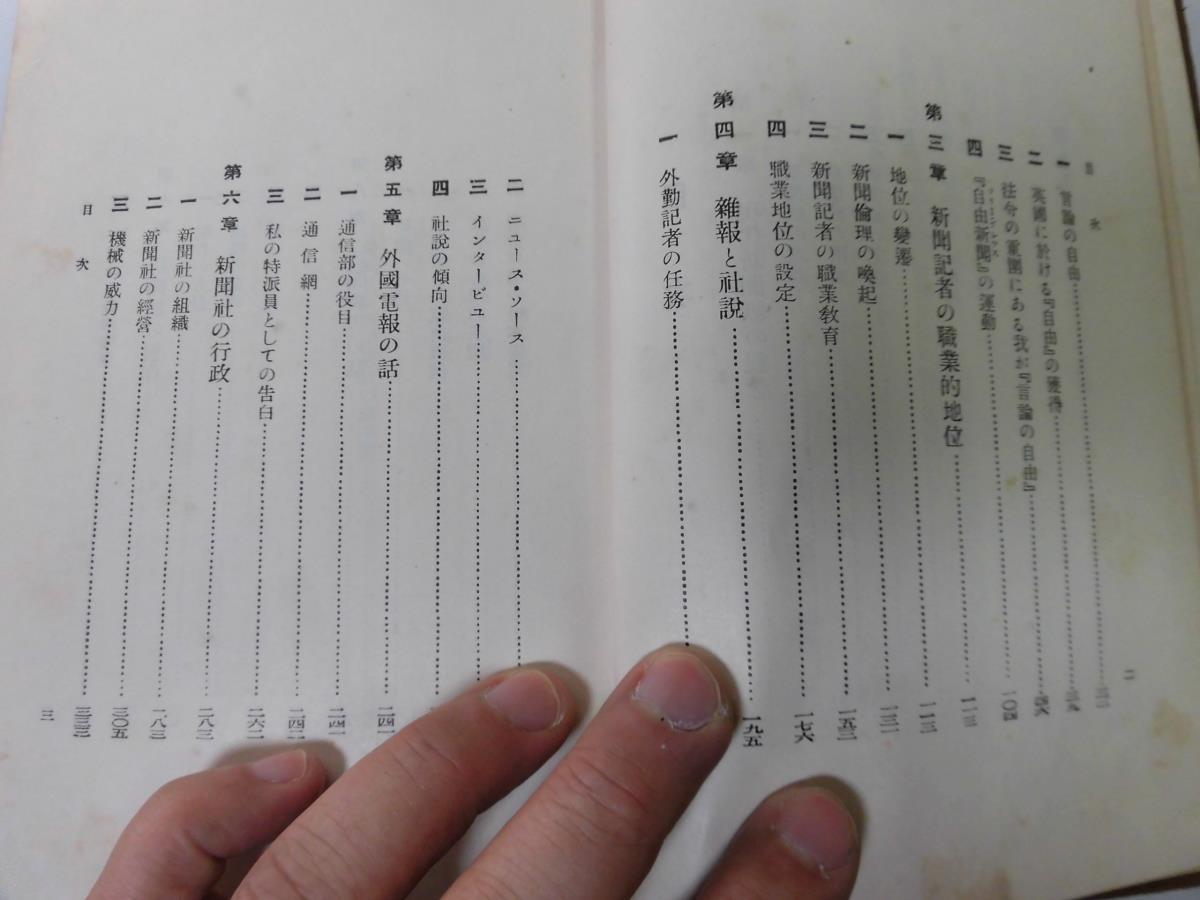 目次
二
一 言論の自由
二 英國に於ける『自由』の獲得 三九
三 法令の重圍にある我が『言論の自由』
四 『自由新聞』の運動 一〇四
第三章 新聞記者の職業的地位 一一三
一 地位の變遷 一一三
二 新聞倫理の喚起 一三一
三 新聞記者の職業敎育 一五三
四 職業地位の設定 一七六
第四章 雜報と社說 一九五
一 外勤記者の任務
二 ニュース・ソース
三 インタービュー
四 社說の傾向
第五章 外國電報の話 二四一
一 通信部の役目 二四一
二 通信網 二四二
三 私の特派員としての告白 二六二
第六章 新聞社の行政 二八三
一 新聞社の組織 二八三
二 新聞社の經營 三〇五
三 機械の威力 三三三
目次
三